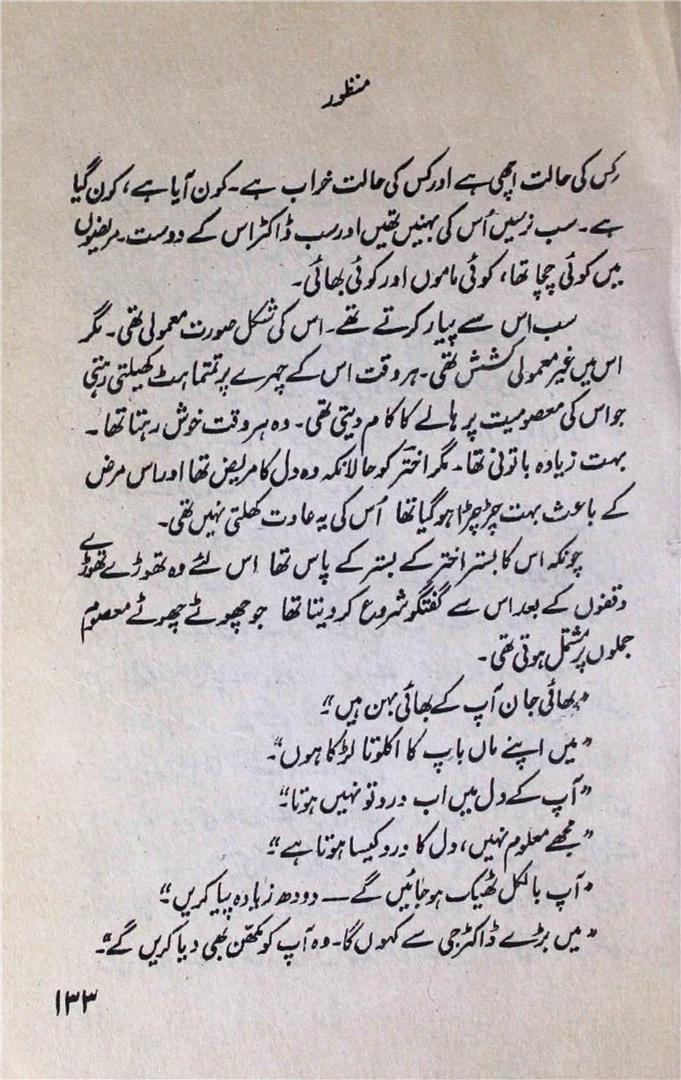 منظور
کِس کی حالت اچھی ہے اور کس کی حالت خراب ہے۔ کون آیا ہے، کون گیا
ہے۔ سب نرسیں اُس کی بہنیں تھیں اور سب ڈاکٹر اس کے دوست۔ مریضوں
میں کوئی چچا تھا، کوئی ماموں اور کوئی بھائی۔
سب اس سے پیار کرتے تھے۔ اس کی شکل صورت معمولی تھی۔ مگر
اس میں غیر معمولی کشش تھی۔ ہر وقت اس کے چہرے پر تمتماہٹ کھیلتی رہتی
جو اس کی معصومیت پر ہالے کا کام دیتی تھی۔ وہ ہر وقت خوش رہتا تھا۔
بہت زیادہ باتونی تھا۔ مگر اختر کو حالانکہ وہ دل کا مریض تھا اور اس مرض
کے باعث بہت چڑچڑا ہو گیا تھا اُس کی یہ عادت کھلتی نہیں تھی۔
چونکہ اس کا بستر اختر کے بستر کے پاس تھا اس لئے وہ تھوڑے تھوڑے
وقفوں کے بعد اس سے گفتگو شروع کر دیتا تھا جو چھوٹے چھوٹے معصوم
جملوں پر مشتمل ہوتی تھی۔
"بھائی جان آپ کے بھائی بہن ہیں"۔
"میں اپنے ماں باپ کا اکلوتا لڑکا ہوں"۔
"آپ کے دل میں اب درد تو نہیں ہوتا"۔
"مجھے معلوم نہیں، دل کا درد کیسا ہوتا ہے"۔
"آپ بالکل ٹھیک ہو جائیں گے — دودھ زیادہ پیا کریں"۔
"میں بڑے ڈاکٹر جی سے کہوں گا۔ وہ آپ کو مکھن بھی دیا کریں گے"۔
۱۳۳